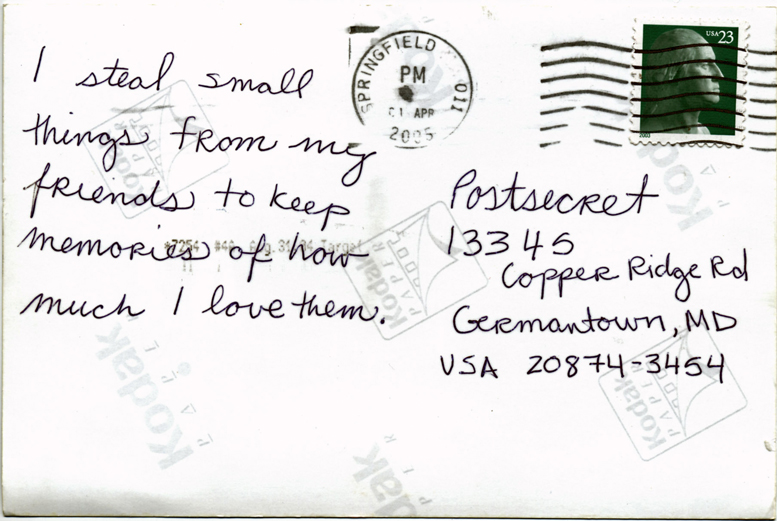 I steal small
things from my
friends to keep
memories of how
much I love them.
SPRINGFIELD 011
PM
01 APR
2005
USA 23
2003
Postsecret
13345
Copper Ridge Rd
Germantown, MD
USA 20874-3454
Kodak
Kodak
Kodak
Kodak
Kodak
Kodak